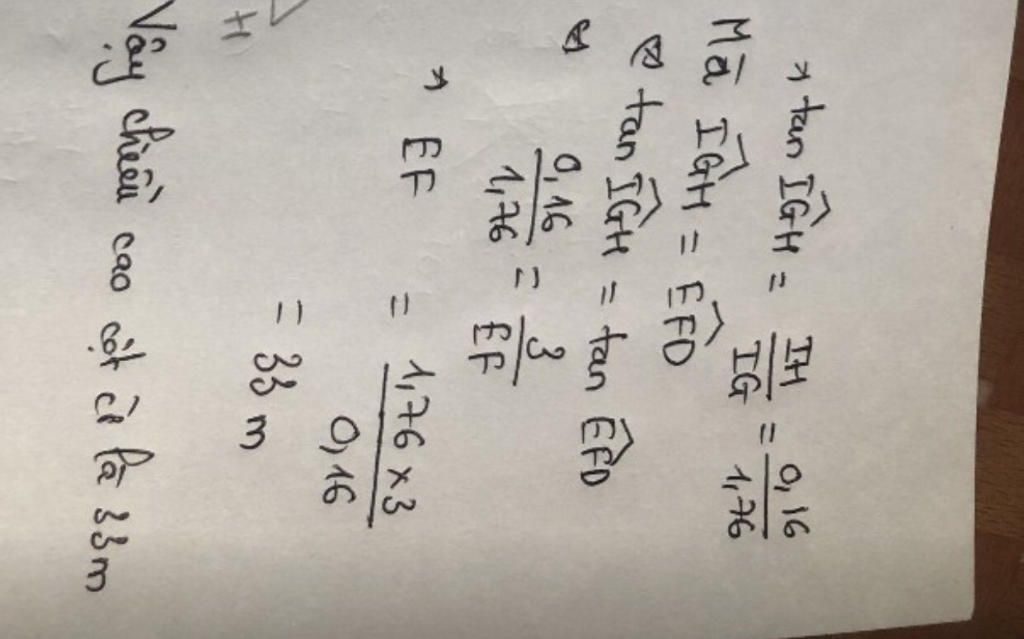 → tan IGH = IH/IG = 0,16/1,76
Mà IGH = EFD
tan IGH = tan EFD
0,16/1,76 = 3/EF
→ EF = 1,76 × 3/0,16
= 33 m
H
Vậy chiều cao cột cờ là 33m